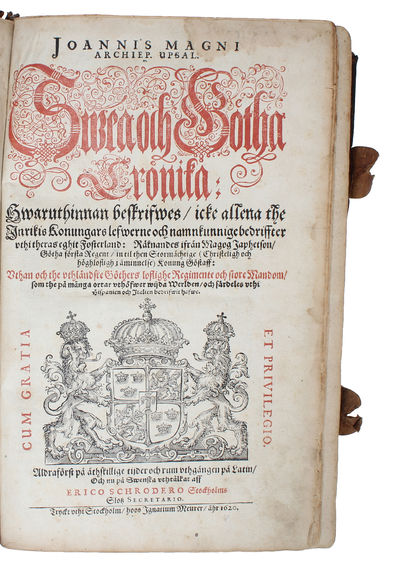 JOANNIS MAGNI
ARCHIEP. UPSAL.
Swea och Götha
Crönika:
Hwaruthinnan beskrifwes / icke allena the
Inrikis Konungars lefwerne och namnkunnige bedriffter
vthi theras eghit Fosterland: Räknandes ifrån Magog Japhetson /
Götha första Regent / in til then Stormächtige (Christeligh och
höghloflígh i åminnelse) Konung Göstaff:
Vthan och the vthländske Göthers loflighe Regimente och store Mandom /
som the på många ortar vthöfwer wijda Werlden / och särdeles vthi
Hispanien och Italien bedrifwit hafwe.
CUM GRATIA
ET PRIVILEGIO.
Aldraförst på åthskillige tijder och rum vthgången på Latin /
Och nu på Swenska vthtålkat aff
ERICO SCHRODERO Stockholms
Slotz SECRETARIO.
Tryckt vthi Stockholm / hoos Ignatium Meurer / åhr 1620.